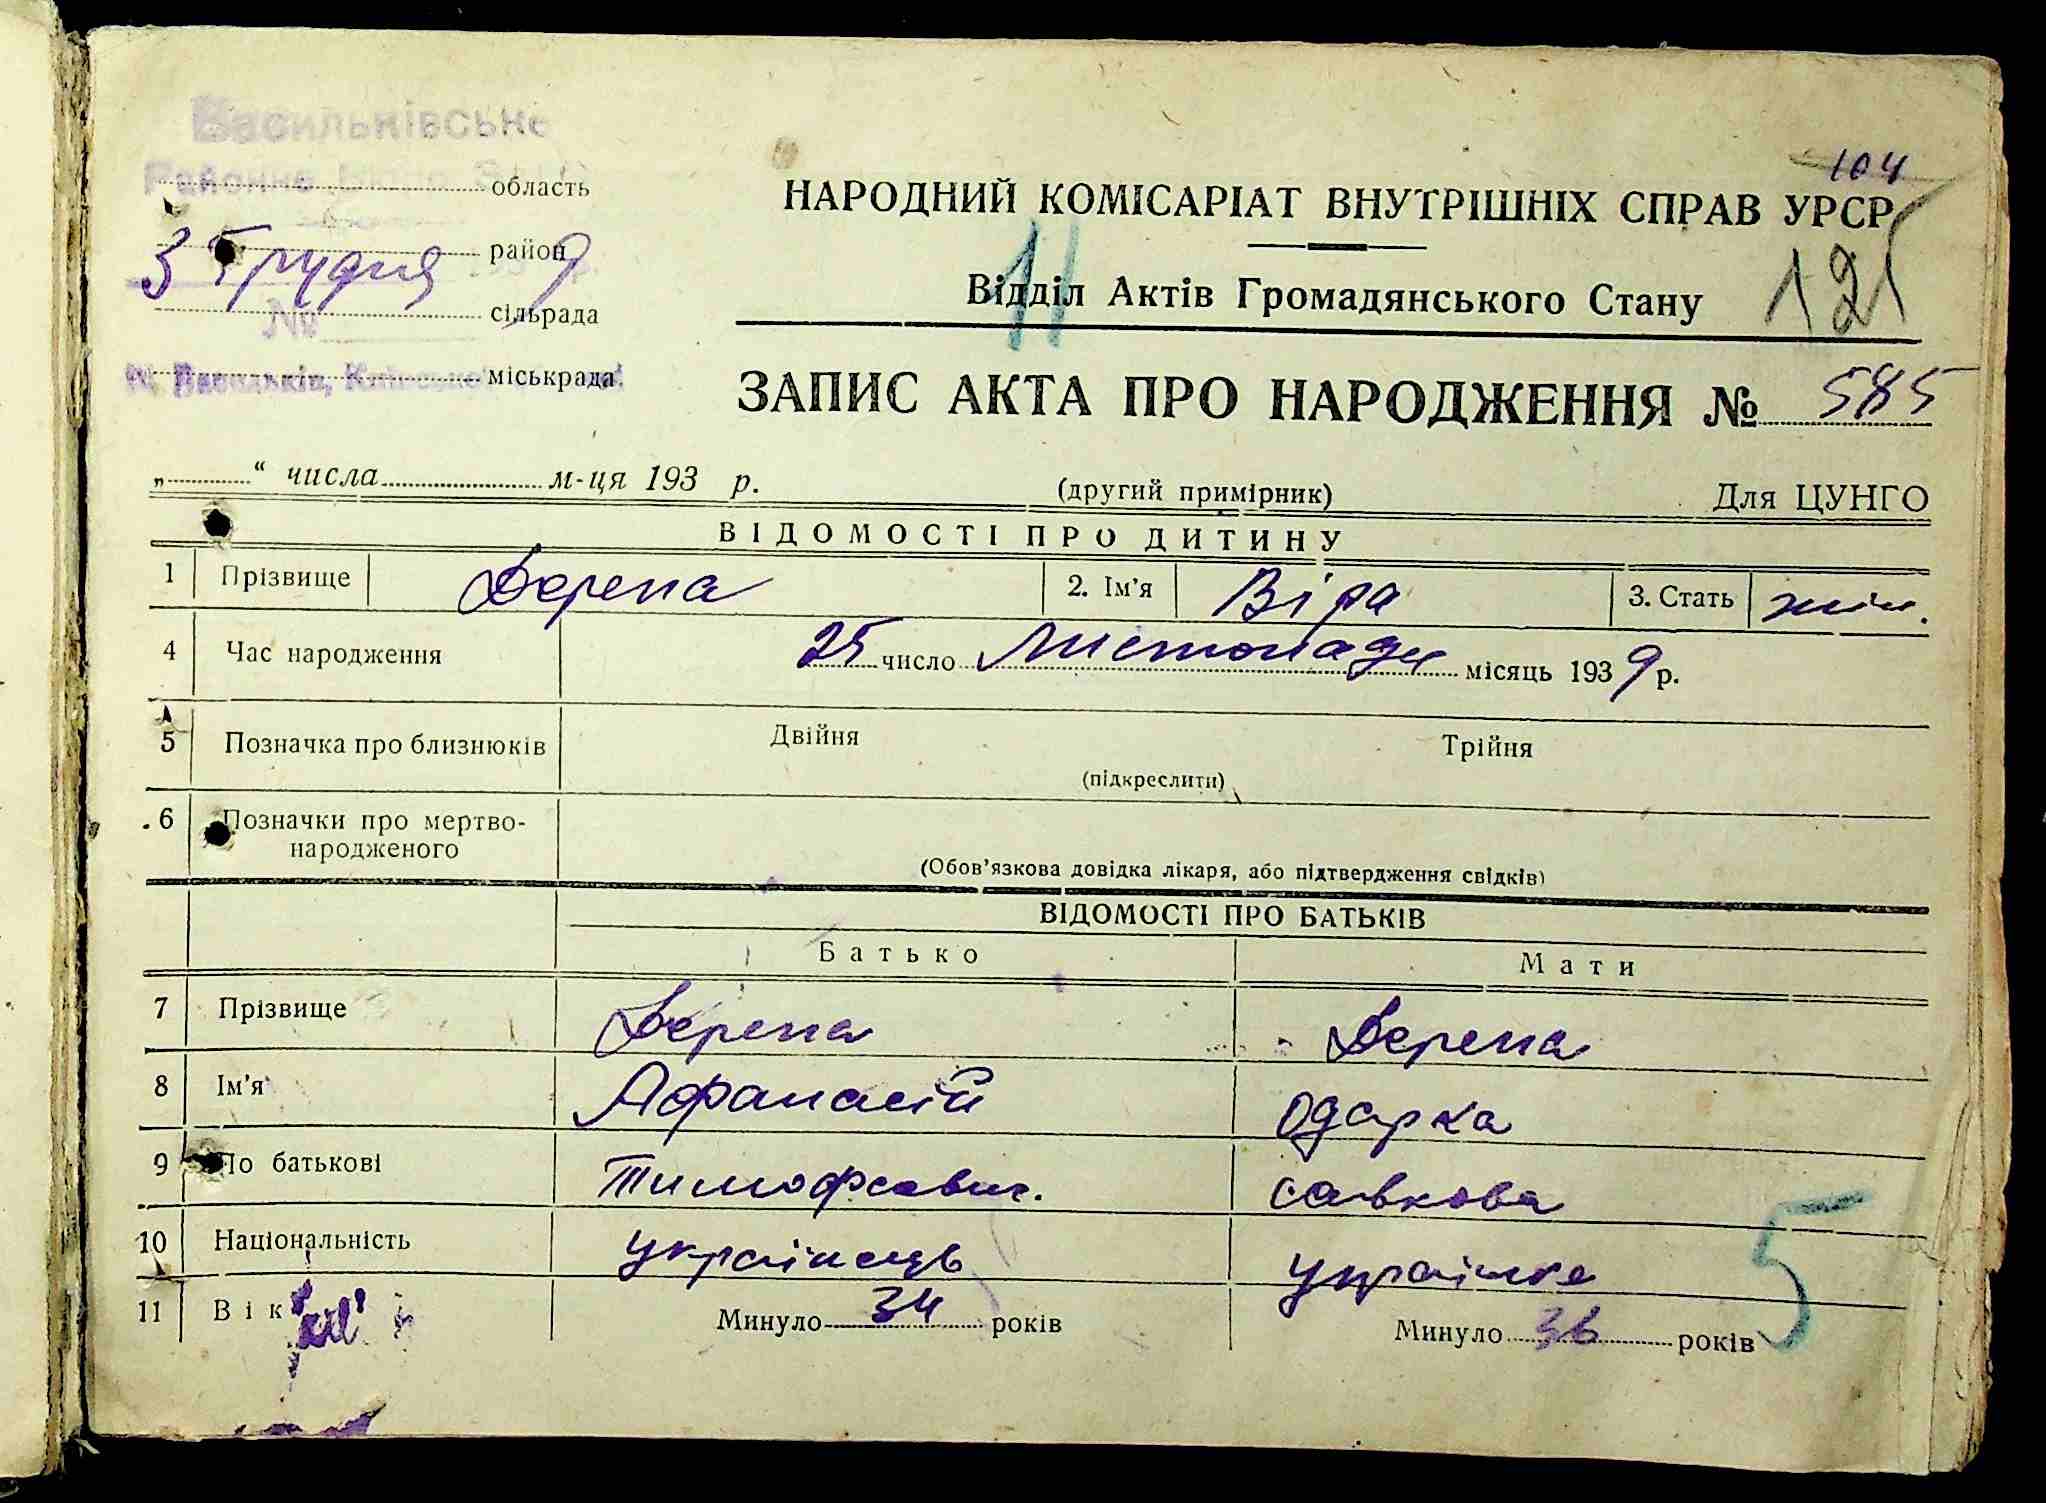 Васильківське
Районне Бюро ЗАГС
область
район
3 Грудня 9 р.
сільрада
№
м. Васильків, Київської
міськрада
104
НАРОДНИЙ КОМІСАРІАТ ВНУТРІШНІХ СПРАВ УРСР
11
125
Відділ Актів Громадянського Стану
ЗАПИС АКТА ПРО НАРОДЖЕННЯ № 585
„ “ числа м-ця 193 р. (другий примірник) Для ЦУНГО
ВІДОМОСТІ ПРО ДИТИНУ
1 Прізвище Дерепа 2. Ім'я Віра 3. Стать жін.
4 Час народження 25 число Листопада місяць 1939 р.
5 Позначка про близнюків Двійня Трійня
(підкреслити)
6 Позначки про мертво-
народженого
(Обов'язкова довідка лікаря, або підтвердження свідків)
ВІДОМОСТІ ПРО БАТЬКІВ
Батько Мати
7 Прізвище Дерепа Дерепа
8 Ім'я Афанасій Одарка
9 По батькові Тимофеевич. Савкова
10 Національність українець українка
11 Вік Минуло 34 років Минуло 36 років
5